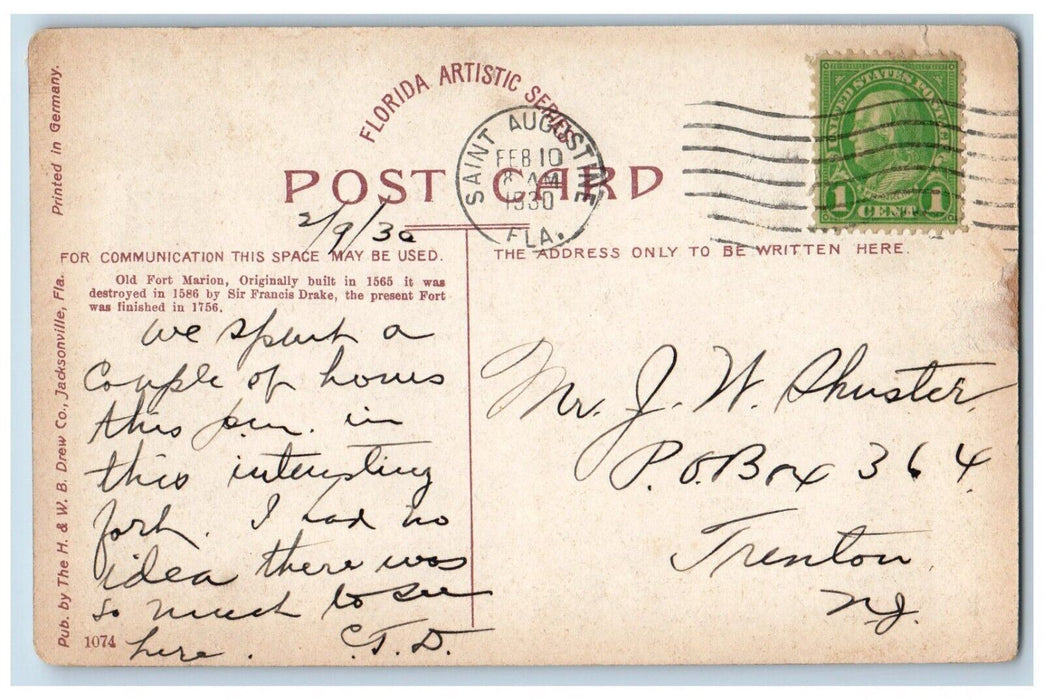 FLORIDA ARTISTIC SERIES
POST CARD
SAINT AUGUSTINE
FEB 10
8 AM
1930
FLA.
UNITED STATES POSTAGE
FRANKLIN
1 CENT 1
2/9/30
FOR COMMUNICATION THIS SPACE MAY BE USED.
THE ADDRESS ONLY TO BE WRITTEN HERE.
Old Fort Marion, Originally built in 1565 it was
destroyed in 1586 by Sir Francis Drake, the present Fort
was finished in 1756.
We spent a
couple of hours
this p.m. in
this interesting
fort. I had no
idea there was
so much to see
here. C.T.D.
Mr. J. W. Shuster
P.O. Box 364
Trenton,
N.J.
Printed in Germany.
Pub. by The H. & W. B. Drew Co., Jacksonville, Fla.
1074